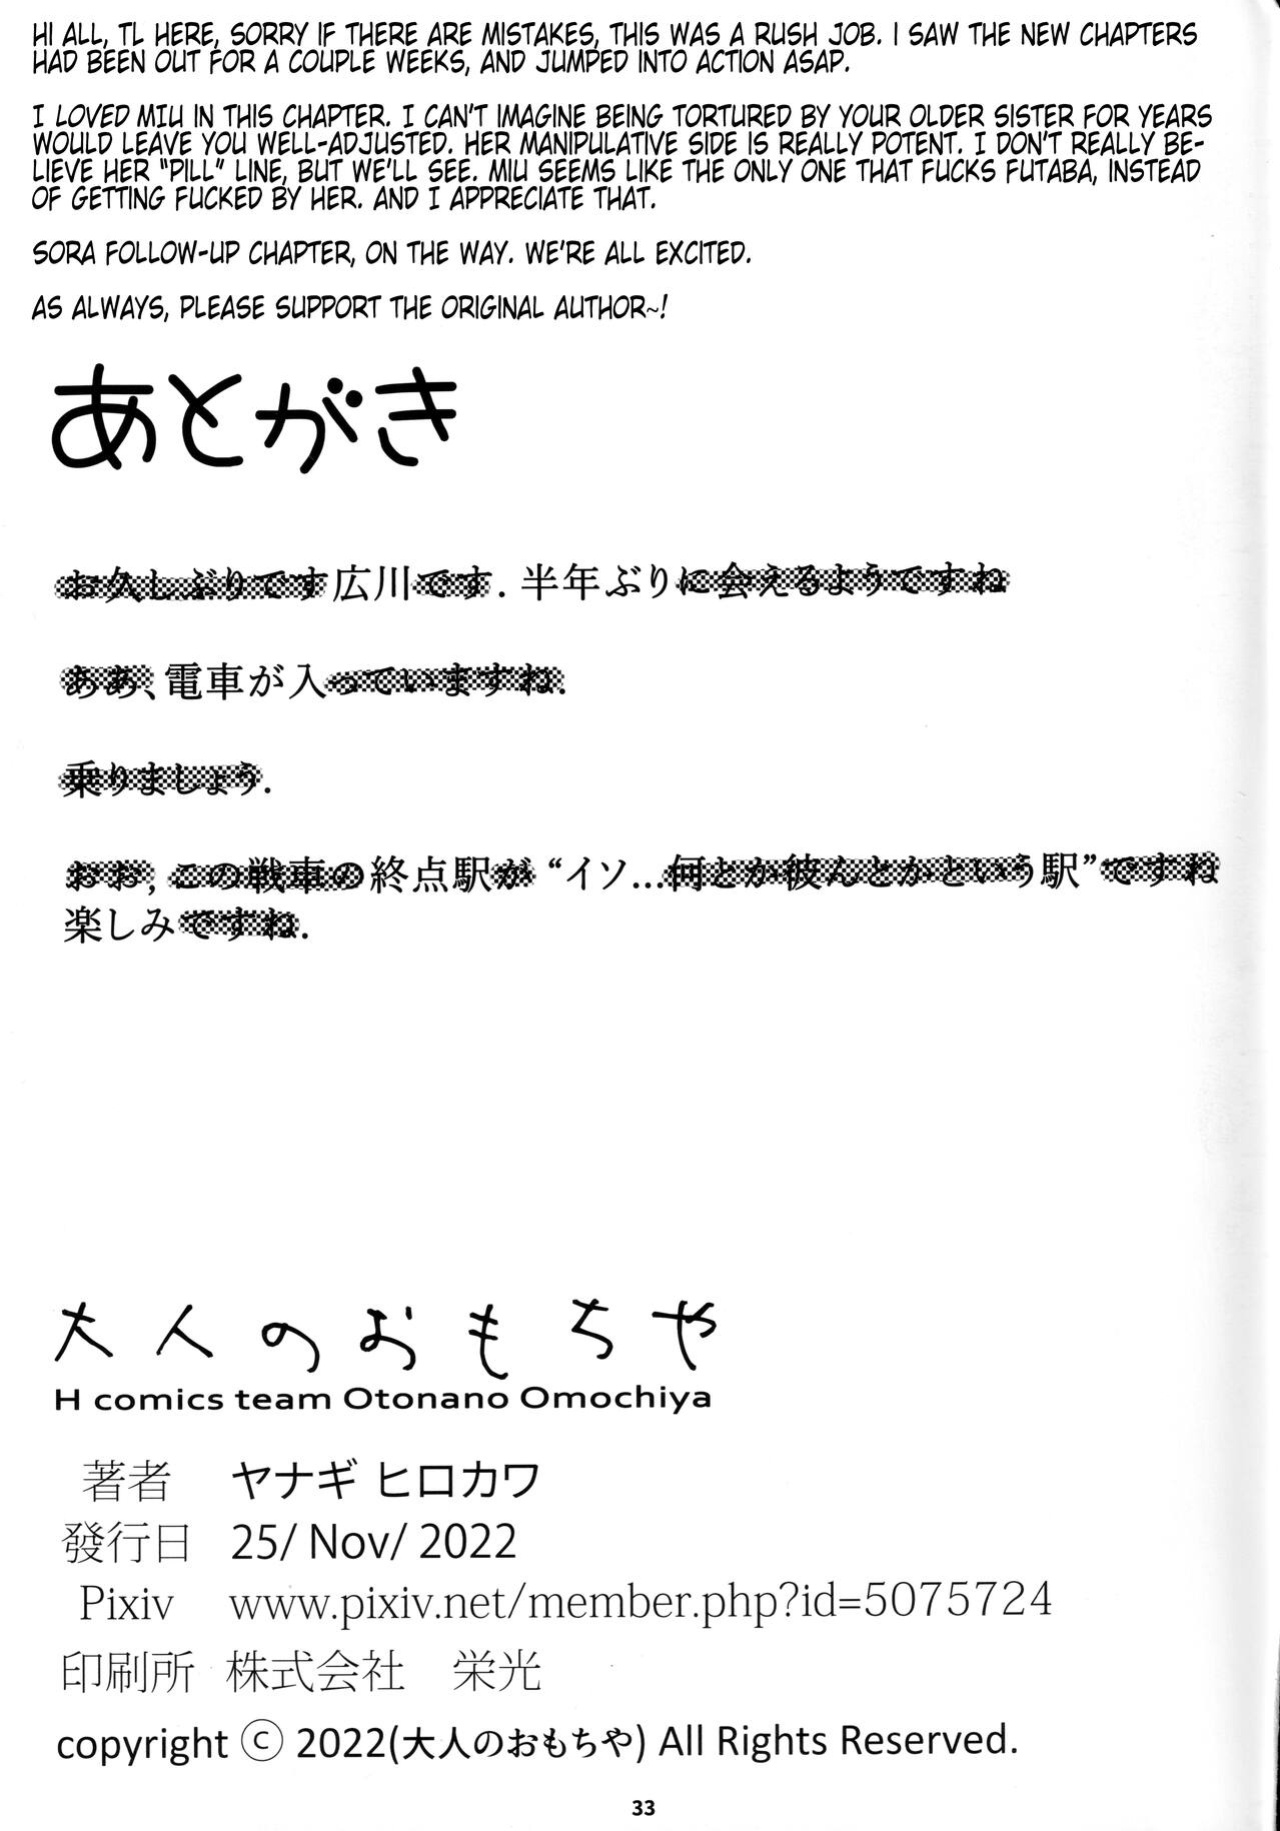 HI ALL, TL HERE, SORRY IF THERE ARE MISTAKES, THIS WAS A RUSH JOB. I SAW THE NEW CHAPTERS
HAD BEEN OUT FOR A COUPLE WEEKS, AND JUMPED INTO ACTION ASAP.
I LOVED MIU IN THIS CHAPTER. I CAN'T IMAGINE BEING TORTURED BY YOUR OLDER SISTER FOR YEARS
WOULD LEAVE YOU WELL-ADJUSTED. HER MANIPULATIVE SIDE IS REALLY POTENT. I DON'T REALLY BE-
LIEVE HER "PILL" LINE, BUT WE'LL SEE. MIU SEEMS LIKE THE ONLY ONE THAT FUCKS FUTABA, INSTEAD
OF GETTING FUCKED BY HER. AND I APPRECIATE THAT.
SORA FOLLOW-UP CHAPTER, ON THE WAY. WE'RE ALL EXCITED.
AS ALWAYS, PLEASE SUPPORT THE ORIGINAL AUTHOR~!
あとがき
お久しぶりです広川です. 半年ぶりに会えるようですね
ああ、電車が入っていますね.
乗りましょう.
おお, この戦車の終点駅が “イソ...何とか彼んとかという駅” ですね
楽しみですね.
大人のおもちや
H comics team Otonano Omochiya
著者 ヤナギ ヒロカワ
發行日 25/ Nov/ 2022
Pixiv www.pixiv.net/member.php?id=5075724
印刷所 株式会社 栄光
copyright ⓒ 2022(大人のおもちや) All Rights Reserved.
33